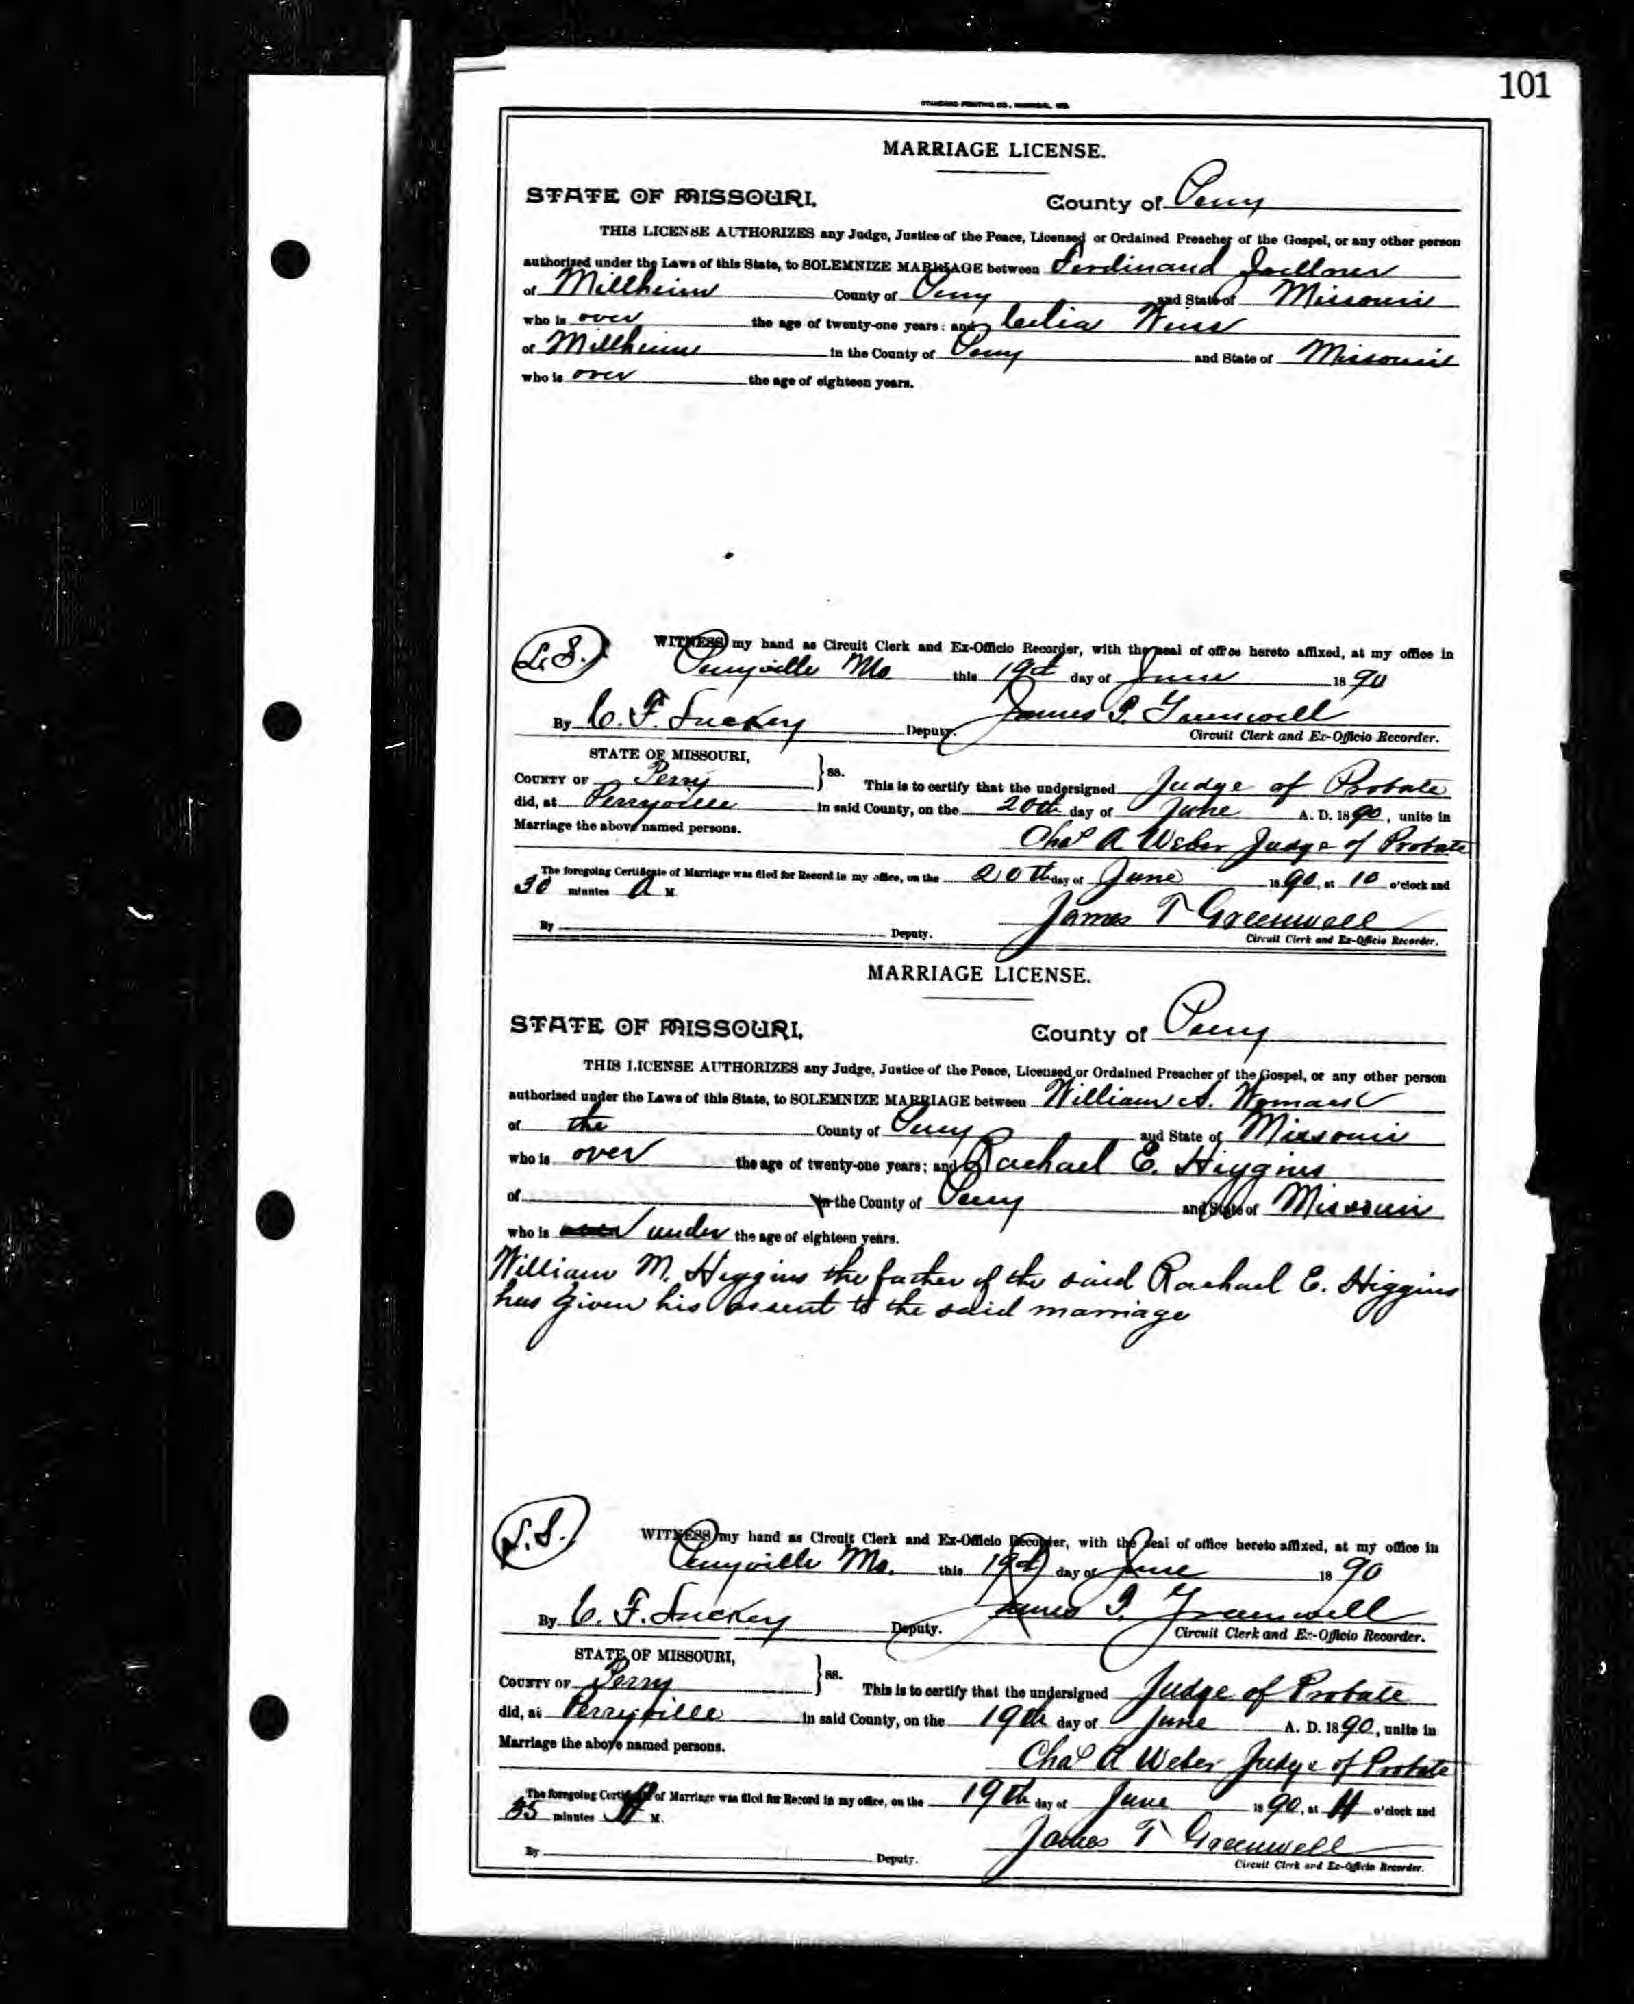 101
STANDARD PRINTING CO., HANNIBAL, MO.
MARRIAGE LICENSE.
STATE OF MISSOURI, County of Perry
THIS LICENSE AUTHORIZES any Judge, Justice of the Peace, Licensed or Ordained Preacher of the Gospel, or any other person
authorized under the Laws of this State, to SOLEMNIZE MARRIAGE between Ferdinand
of Millheim County of Perry and State of Missouri
who is over the age of twenty-one years: and Celia
of Millheim in the County of Perry and State of Missouri
who is over the age of eighteen years.
L.S. WITNESS my hand as Circuit Clerk and Ex-Officio Recorder, with the seal of office hereto affixed, at my office in
Perryville Mo. this 19th day of June 1890
By C. F. Deputy. James T. Greenwell
Circuit Clerk and Ex-Officio Recorder.
STATE OF MISSOURI,
COUNTY OF Perry ss. This is to certify that the undersigned Judge of Probate
did, at Perryville in said County, on the 20th day of June A. D. 1890, unite in
Marriage the above named persons.
Chas A Weber Judge of Probate
The foregoing Certificate of Marriage was filed for Record in my office, on the 20th day of June 1890, at 10 o'clock and
30 minutes A M.
James T Greenwell
By Deputy. Circuit Clerk and Ex-Officio Recorder.
MARRIAGE LICENSE.
STATE OF MISSOURI, County of Perry
THIS LICENSE AUTHORIZES any Judge, Justice of the Peace, Licensed or Ordained Preacher of the Gospel, or any other person
authorized under the Laws of this State, to SOLEMNIZE MARRIAGE between William A. Womack
of the County of Perry and State of Missouri
who is over the age of twenty-one years; and Rachael E. Higgins
of in the County of Perry and State of Missouri
who is over under the age of eighteen years.
William M. Higgins the father of the said Rachael E. Higgins
has given his assent to the said marriage
L.S. WITNESS my hand as Circuit Clerk and Ex-Officio Recorder, with the seal of office hereto affixed, at my office in
Perryville Mo. this 19th day of June 1890
By C. F. Deputy. James T. Greenwell
Circuit Clerk and Ex-Officio Recorder.
STATE OF MISSOURI,
COUNTY OF Perry ss. This is to certify that the undersigned Judge of Probate
did, at Perryville in said County, on the 19th day of June A. D. 1890, unite in
Marriage the above named persons.
Chas A Weber Judge of Probate
The foregoing Certificate of Marriage was filed for Record in my office, on the 19th day of June 1890, at o'clock and
35 minutes M.
James T Greenwell
By Deputy. Circuit Clerk and Ex-Officio Recorder.